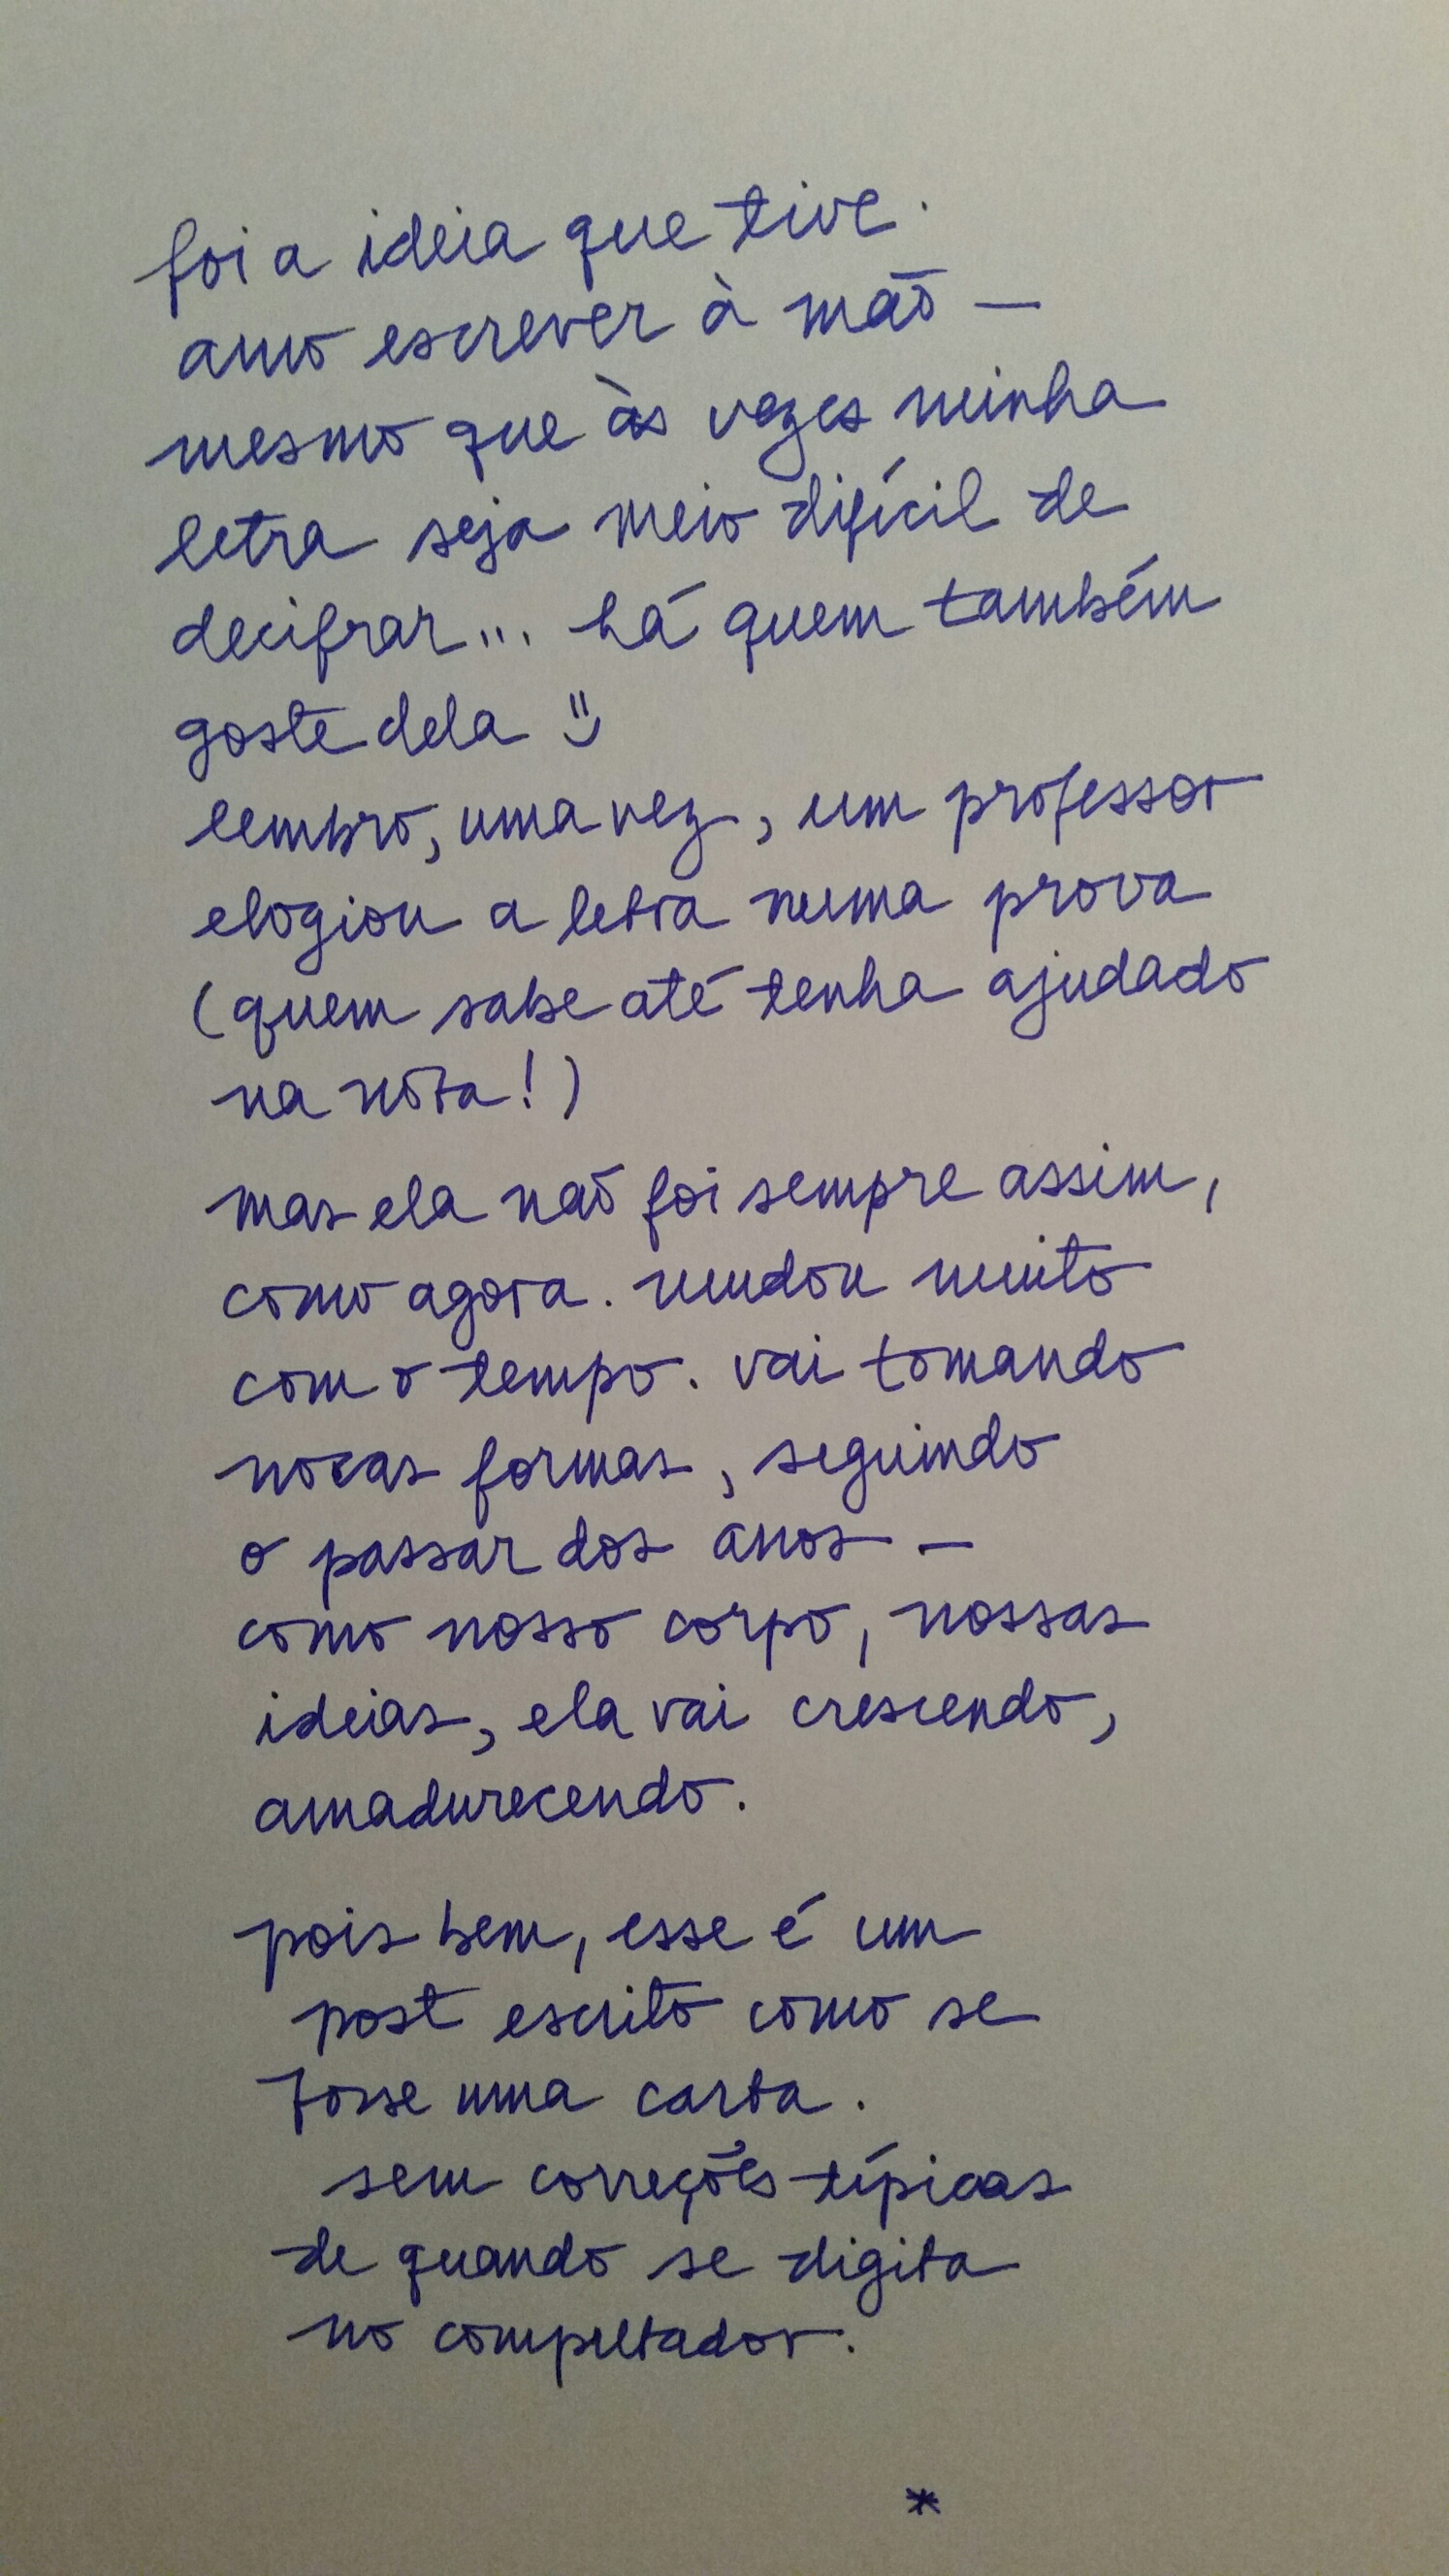 foi a ideia que tive.
amo escrever à mão —
mesmo que às vezes minha
letra seja meio difícil de
decifrar... há quem também
goste dela :)
lembro, uma vez, um professor
elogiou a letra numa prova
(quem sabe até tenha ajudado
na nota!)
mas ela não foi sempre assim,
como agora. mudou muito
com o tempo. vai tomando
novas formas, seguindo
o passar dos anos —
como nosso corpo, nossas
ideias, ela vai crescendo,
amadurecendo.
pois bem, esse é um
post escrito como se
fosse uma carta.
sem correções típicas
de quando se digita
no computador.
*